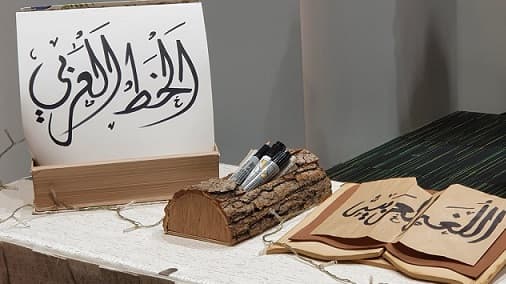 الخط العربي
اللغة العربية